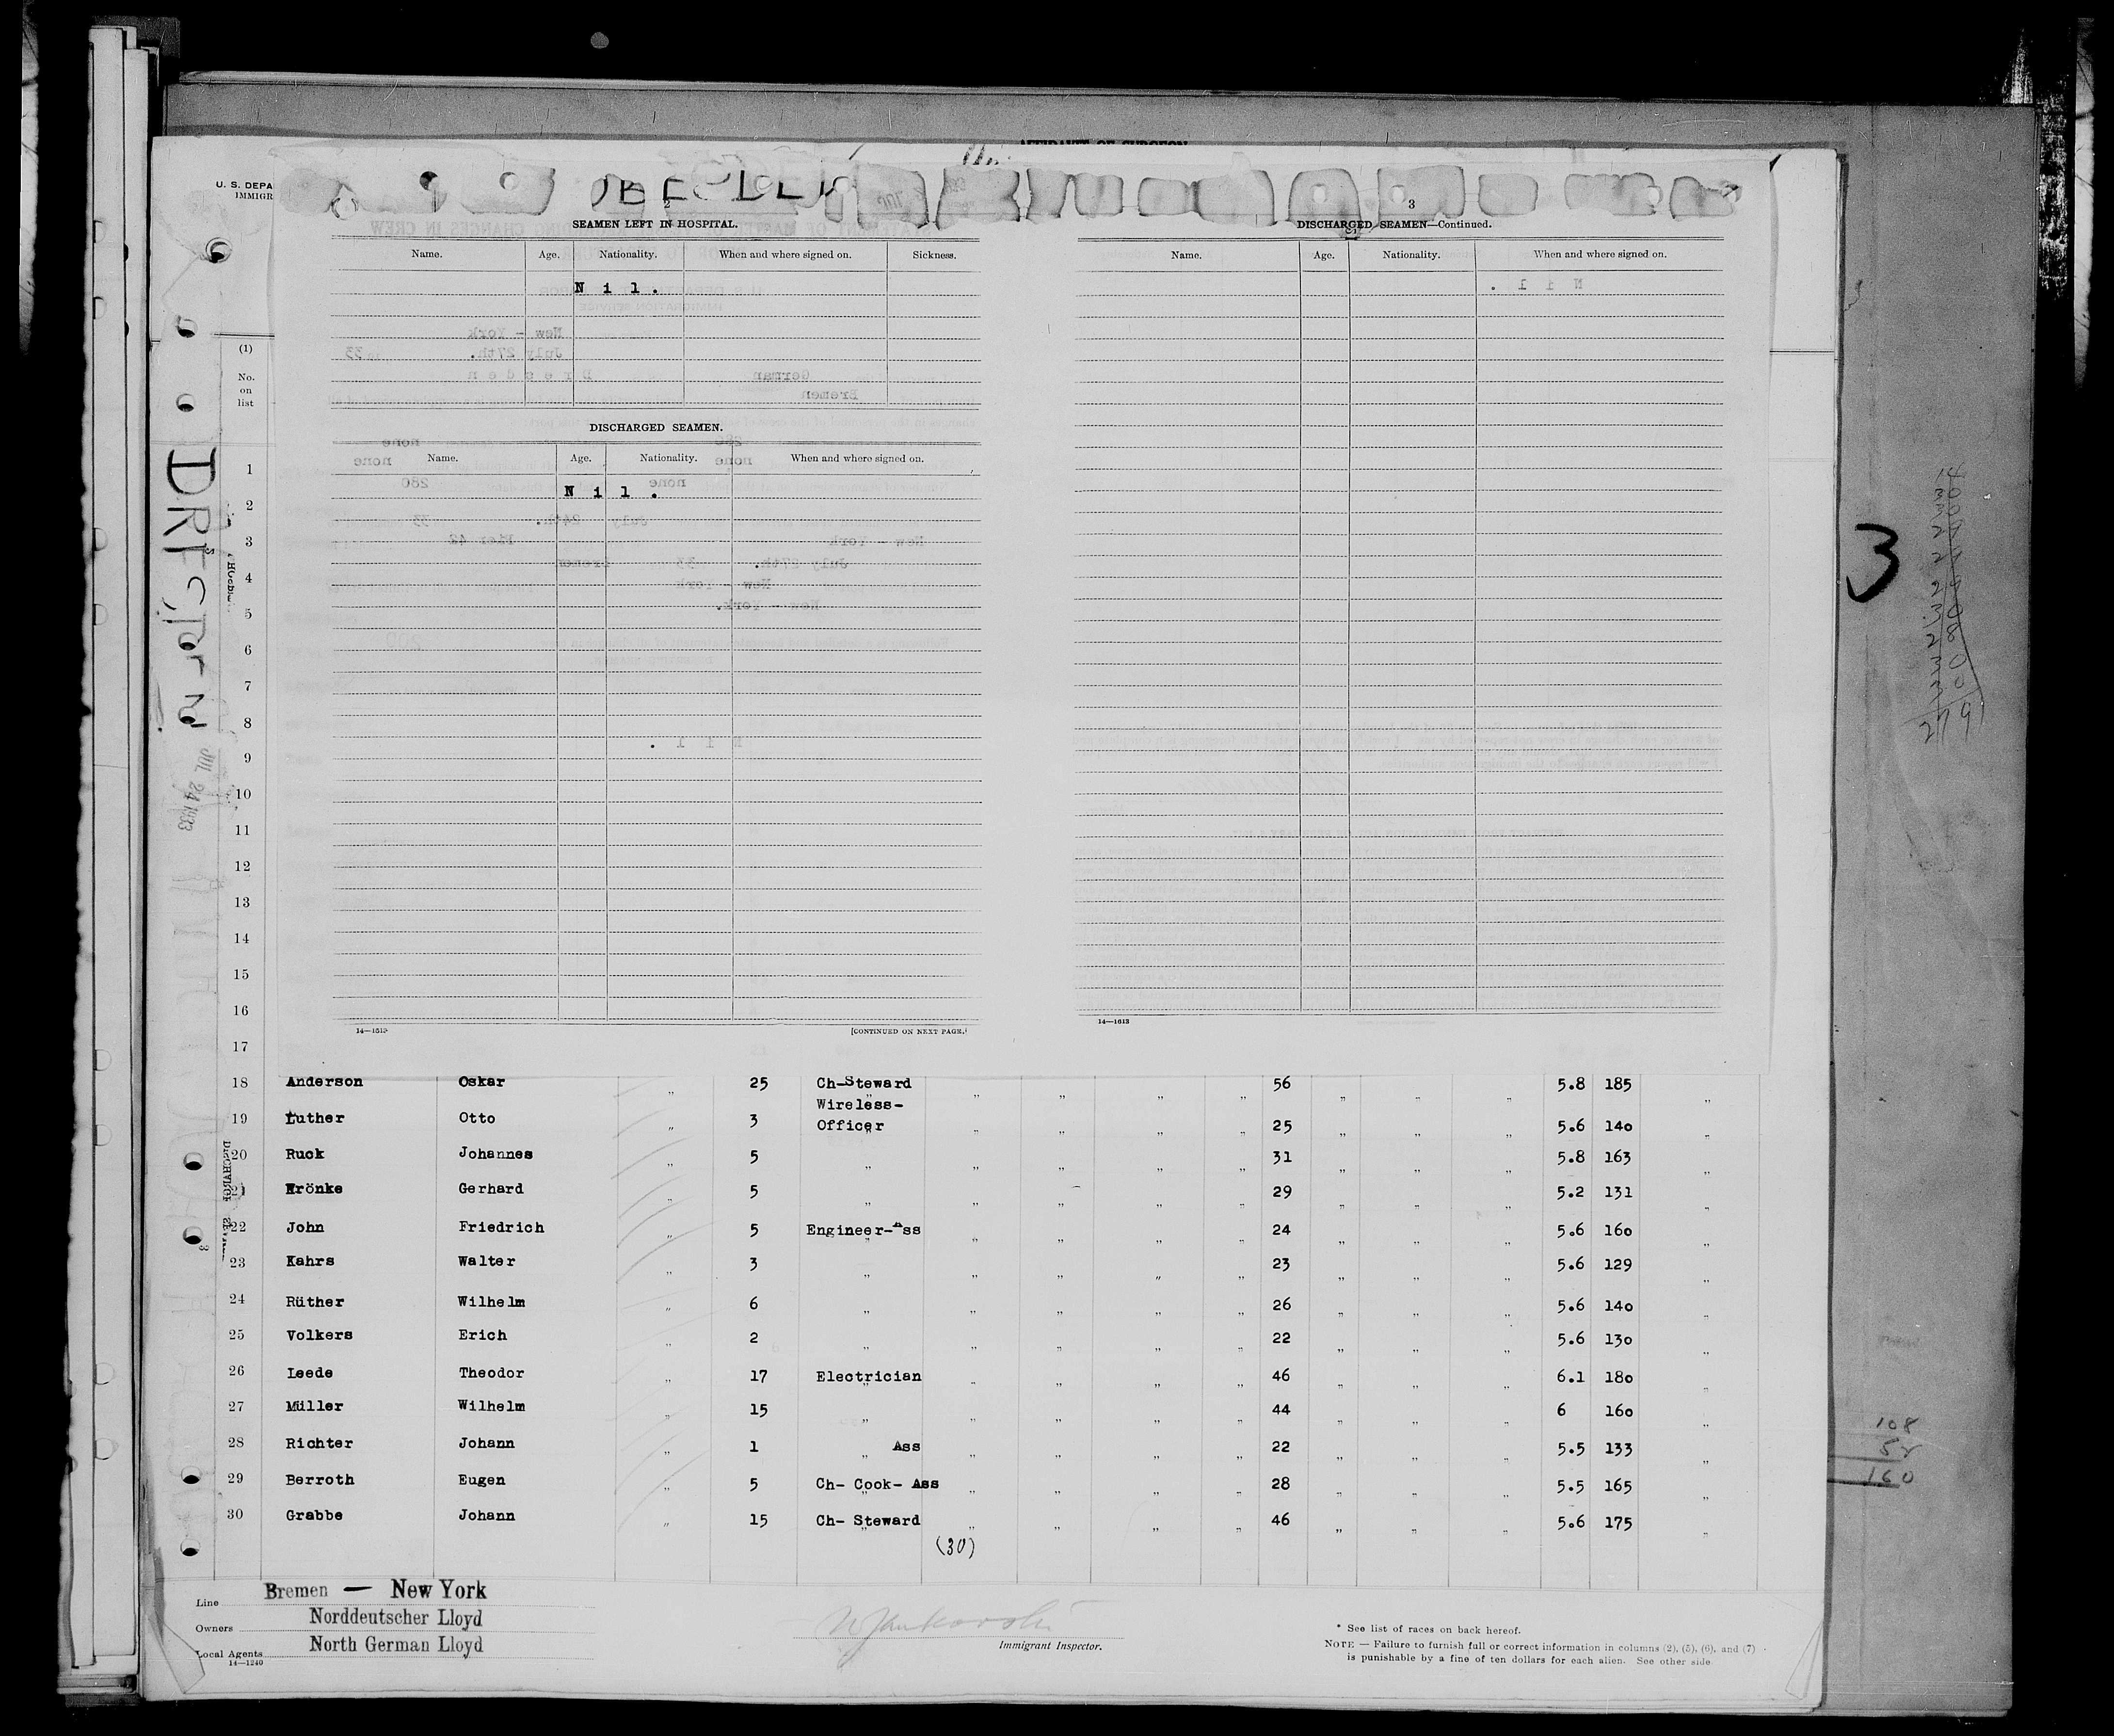 AFFIDAVIT OF SURGEON
U. S. DEPA
IMMIGR
2
SEAMEN LEFT IN HOSPITAL.
Name. Age. Nationality. When and where signed on. Sickness.
N i l .
DISCHARGED SEAMEN.
Name. Age. Nationality. When and where signed on.
N i l .
14—1613
[CONTINUED ON NEXT PAGE.]
3
DISCHARGED SEAMEN—Continued.
Name. Age. Nationality. When and where signed on.
N i l .
14—1613
3
(1)
No.
on
list
1
2
3
4
5
6
7
8
9
10
11
12
13
14
15
16
17
JUL 24 1933
18 Anderson Oskar „ 25 Ch-Steward „ „ „ „ 56 „ „ „ 5.8 185 „
19 Luther Otto „ 3 Wireless-
Officer „ „ „ „ 25 „ „ „ 5.6 140 „
20 Ruck Johannes „ 5 „ „ „ „ „ 31 „ „ „ 5.8 163 „
21 Krönke Gerhard „ 5 „ „ „ „ „ 29 „ „ „ 5.2 131 „
22 John Friedrich „ 5 Engineer-Ass „ „ „ „ 24 „ „ „ 5.6 160 „
23 Kahrs Walter „ 3 „ „ „ „ „ 23 „ „ „ 5.6 129 „
24 Rüther Wilhelm „ 6 „ „ „ „ „ 26 „ „ „ 5.6 140 „
25 Volkers Erich „ 2 „ „ „ „ „ 22 „ „ „ 5.6 130 „
26 Leede Theodor „ 17 Electrician „ „ „ „ 46 „ „ „ 6.1 180 „
27 Müller Wilhelm „ 15 „ „ „ „ „ 44 „ „ „ 6 160 „
28 Richter Johann „ 1 „ Ass „ „ „ „ 22 „ „ „ 5.5 133 „
29 Berroth Eugen „ 5 Ch- Cook- Ass „ „ „ „ 28 „ „ „ 5.5 165 „
30 Grabbe Johann „ 15 Ch- Steward „ „ „ „ 46 „ „ „ 5.6 175 „
(30)
108
52
160
Line Bremen — New York
Owners Norddeutscher Lloyd
Local Agents North German Lloyd
14—1240
Immigrant Inspector.
* See list of races on back hereof.
NOTE — Failure to furnish full or correct information in columns (2), (5), (6), and (7)
is punishable by a fine of ten dollars for each alien. See other side